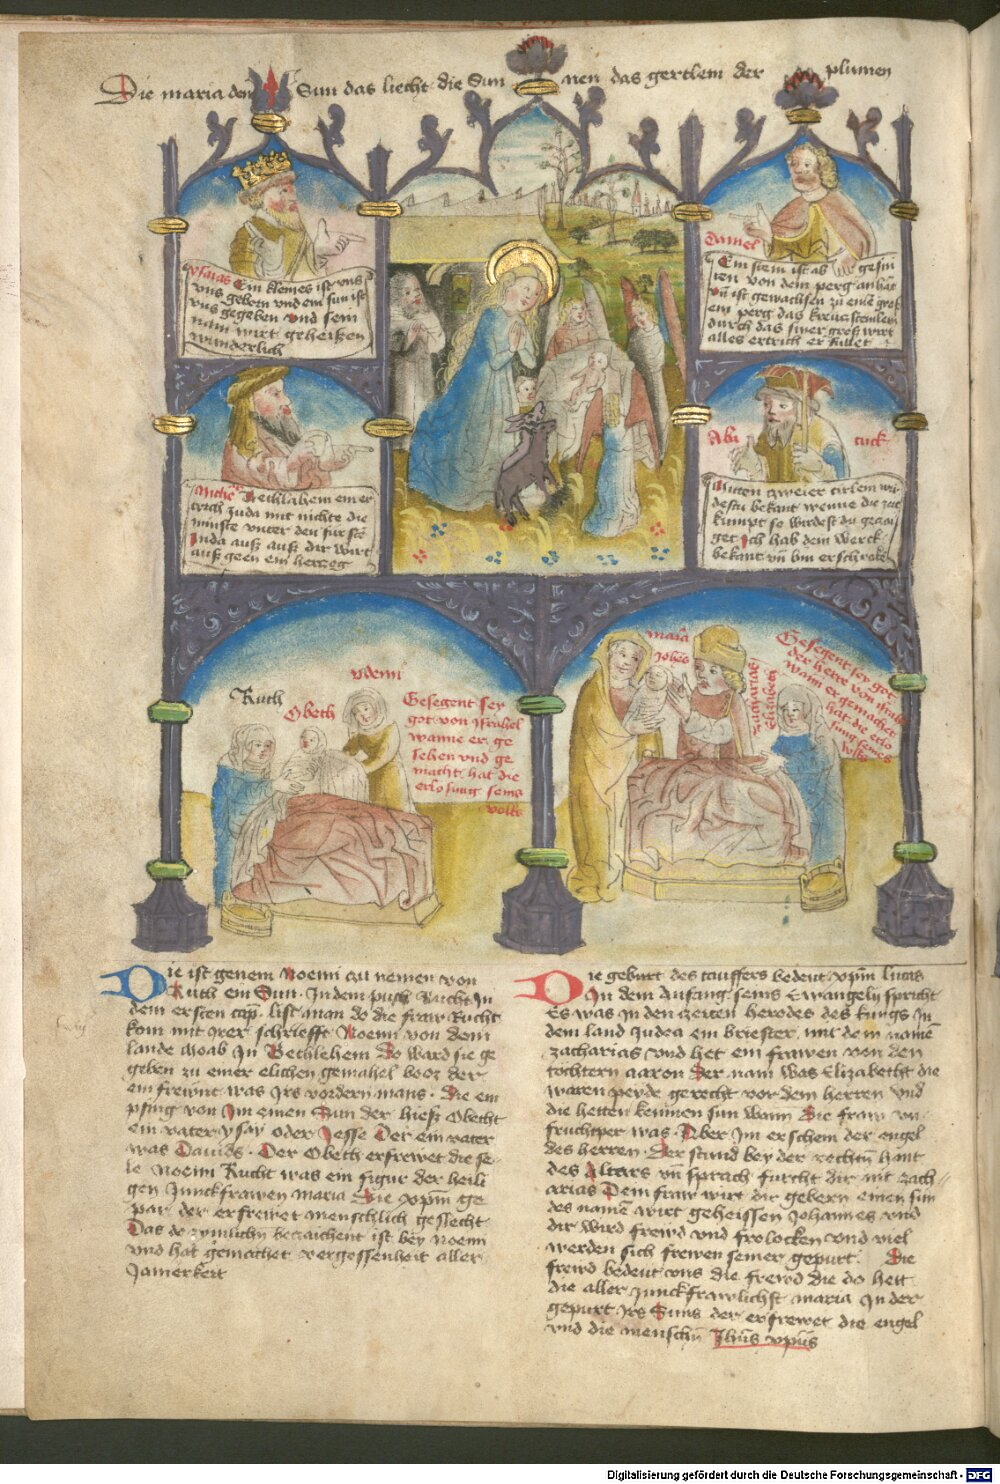 Die maria den Sun das liecht die Sun nen das gertlem der plumen
ysaias Ein kleines ist uns
uns geborn und ein sun ist
uns gegeben und sein
nam wirt geheissen
wunderlich
Daniel
Ein stein ist ab gesni
ten von dem perg an hant
un ist gewachsen zu einem gros
ein perg das kreucz stenlen
durch das siner gros wirt
alles ertrich er fullet
Miche Bethlahem ein er
trich Juda mit nichte die
minste unter den furste
Juda auß auß dir wirt
auß geen ein herczog
Aba cuck
Mitten zweier tirlem wir
destu bekant wenne die zeit
kumpt so wirdest du geczai
get Ich hab dein werck
bekant un bin erschroken
Ruth
Obeth
Gesegent sey
got von Israhel
wanne er ge
sehen und ge
macht hat die
erlosung seins
volks
maria
Johes
Zacharias
Elizabeth
Gesegent sey got
der herre von israhel
wann er gemachet
hat die erlo
sung seines
volks
Die ist genem Noemi zu nemen von
Ruth ein Sun. In dem puch Rucht In
dem ersten cap. list man do die fraw Rucht
kom mit irer Noemi von dem
lande Moab In Bethlehem Do ward sie ge
geben zu einer elichen gemahel booz der
ein freunt was Irs vordern mans. Die em
pfing von Im einen Sun der hieß Obecht
ein vater ysay oder Jesse Der ein vater
was Dauids. Der Obeth erfrewet die se
le Noemi Rucht was ein figur der heili
gen Junckfrawen Maria Die xpm ge
par der erfreuet menschlich geslecht
Das do zymlichen beczaichent ist bey Noemi
und hat gemachet vergessenheit aller
Jamerkeit
Die geburt des tauffers bedeut xpm lucas
In dem Anfang seins Ewangely spricht
Es was In den zeiten herodes des kungs In
dem land Judea ein briester mit dem namen
zacharias und het ein frawen von den
tochtern aaron Der nam was Elizabetht die
waren peyde gerecht vor dem herren und
die hetten keinnen sun wann Die fraw un
fruchtper was. Aber Im erschein der engel
des herren. Der stund bey der rechten hant
des Altars un sprach furcht dir nit zach
arias Dein fraw wirt dir gebern einen sun
des namen wirt geheissen Johannes und
dir wird frewd und frolocken und viel
werden sich frewen seiner gepurt. Die
frewd bedeut uns die frewd die do hett
die aller Junckfrawlichst maria In der
gepurt Irs Suns der erfrewet die engel
und die menschen Jhus xpus
Digitalisierung gefördert durch die Deutsche Forschungsgemeinschaft - DFG